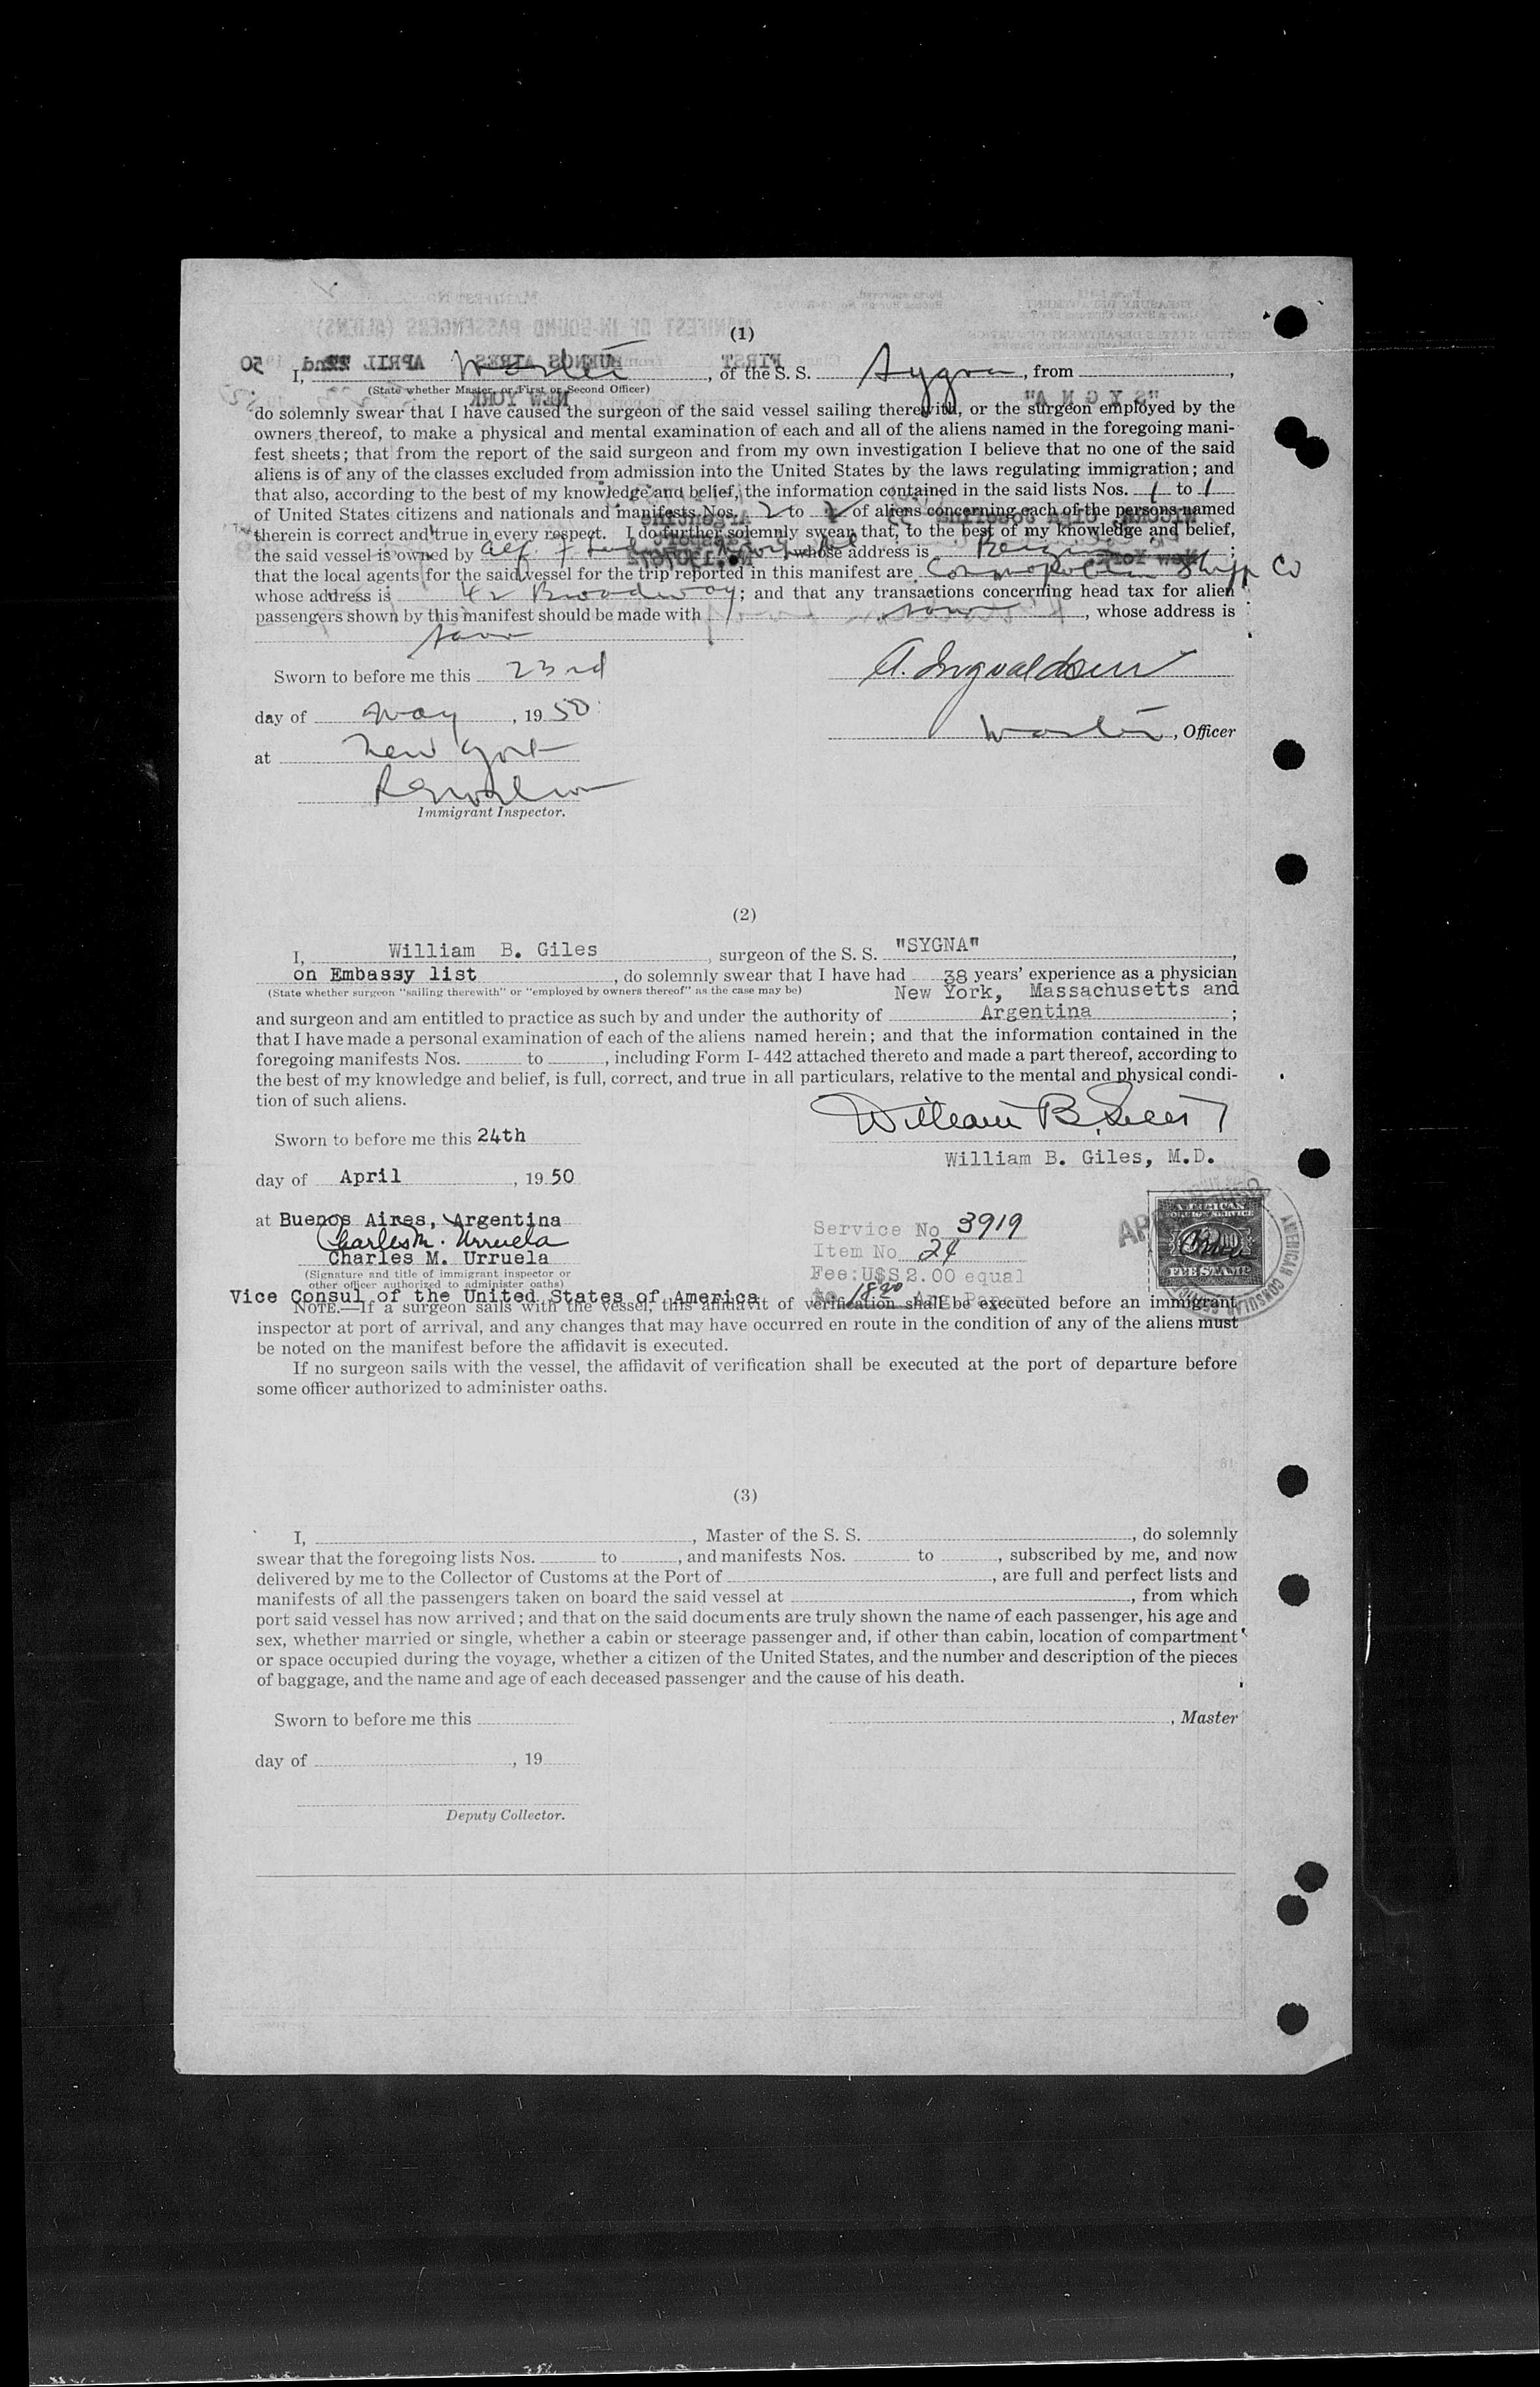 (1)
I, Master, of the S. S. Sygna, from
(State whether Master, or First or Second Officer)
do solemnly swear that I have caused the surgeon of the said vessel sailing therewith, or the surgeon employed by the
owners thereof, to make a physical and mental examination of each and all of the aliens named in the foregoing mani-
fest sheets; that from the report of the said surgeon and from my own investigation I believe that no one of the said
aliens is of any of the classes excluded from admission into the United States by the laws regulating immigration; and
that also, according to the best of my knowledge and belief, the information contained in the said lists Nos. 1 to 1
of United States citizens and nationals and manifests Nos. 2 to 2 of aliens concerning each of the persons named
therein is correct and true in every respect. I do further solemnly swear that, to the best of my knowledge and belief,
the said vessel is owned by whose address is Bergen;
that the local agents for the said vessel for the trip reported in this manifest are Cosmopolitan Shipp Co
whose address is 42 Broadway; and that any transactions concerning head tax for alien
passengers shown by this manifest should be made with same, whose address is
same
Sworn to before me this 23rd
A. Ingvaldsen
day of May, 1950
Master, Officer
at New York
Immigrant Inspector.
(2)
I, William B. Giles, surgeon of the S. S. "SYGNA",
on Embassy list, do solemnly swear that I have had 38 years' experience as a physician
(State whether surgeon "sailing therewith" or "employed by owners thereof" as the case may be)
New York, Massachusetts and
and surgeon and am entitled to practice as such by and under the authority of Argentina;
that I have made a personal examination of each of the aliens named herein; and that the information contained in the
foregoing manifests Nos. to , including Form I-442 attached thereto and made a part thereof, according to
the best of my knowledge and belief, is full, correct, and true in all particulars, relative to the mental and physical condi-
tion of such aliens.
William B. Giles
Sworn to before me this 24th
William B. Giles, M.D.
day of April, 1950
at Buenos Aires, Argentina
Charles M. Urruela
Charles M. Urruela
(Signature and title of immigrant inspector or
other officer authorized to administer oaths)
Vice Consul of the United States of America
Service No. 3919
Item No. 24
Fee: U$S 2.00 equal
to 18.20 Arg. Paper
AMERICAN
FOREIGN SERVICE
FEE STAMP
AMERICAN CONSULAR SERVICE
NOTE.—If a surgeon sails with the vessel, this affidavit of verification shall be executed before an immigrant
inspector at port of arrival, and any changes that may have occurred en route in the condition of any of the aliens must
be noted on the manifest before the affidavit is executed.
If no surgeon sails with the vessel, the affidavit of verification shall be executed at the port of departure before
some officer authorized to administer oaths.
(3)
I, , Master of the S. S. , do solemnly
swear that the foregoing lists Nos. to , and manifests Nos. to , subscribed by me, and now
delivered by me to the Collector of Customs at the Port of , are full and perfect lists and
manifests of all the passengers taken on board the said vessel at , from which
port said vessel has now arrived; and that on the said documents are truly shown the name of each passenger, his age and
sex, whether married or single, whether a cabin or steerage passenger and, if other than cabin, location of compartment
or space occupied during the voyage, whether a citizen of the United States, and the number and description of the pieces
of baggage, and the name and age of each deceased passenger and the cause of his death.
Sworn to before me this
, Master
day of , 19
Deputy Collector.